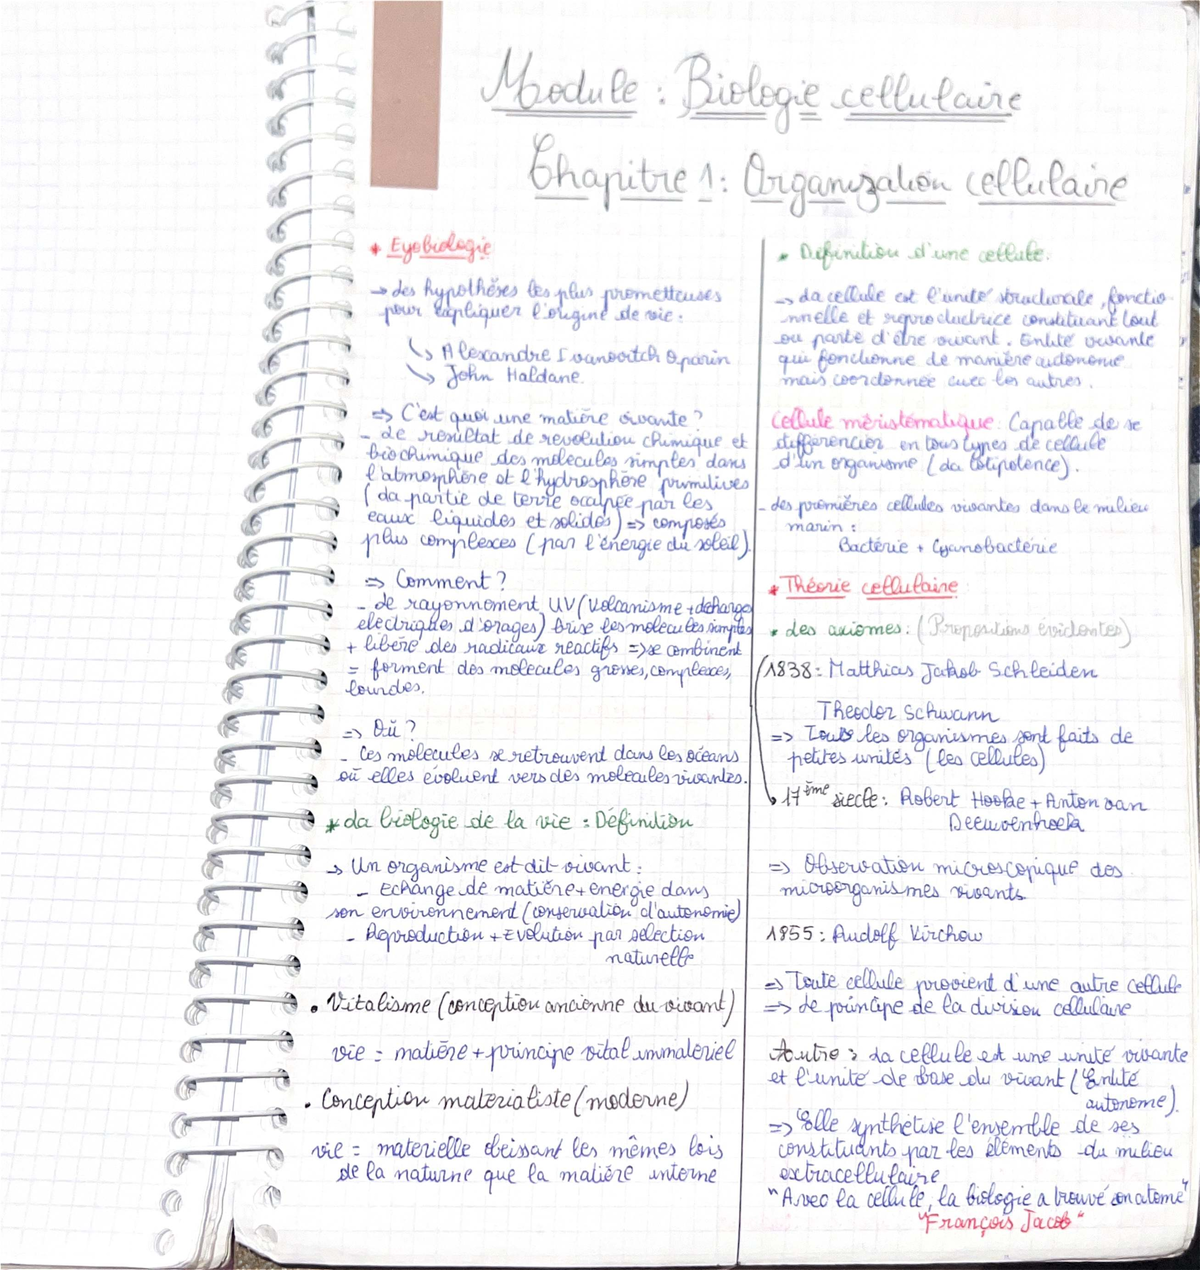 Module : Biologie cellulaire
Chapitre 1: Organization cellulaire
* Eyobiologie
→ des hypothèses les plus prometteuses
pour expliquer l'origine de vie :
↳ Alexandre Ivanovitch Oparin
↳ John Haldane.
⇒ C'est quoi une matière vivante ?
- de résultat de revolution chimique et
biochimique des molécules simples dans
l'atmosphère et l'hydrosphère primitives
( da partie de terre occupée par les
eaux liquides et solides) ⇒ composés
plus complexes ( par l'énergie du soleil).
⇒ Comment ?
- de rayonnement UV (Volcanisme + décharges
electriques d'orages) brise les molécules simples
+ libère des radicaux réactifs ⇒ se combinent
= forment des molécules grosses, complexes,
lourdes.
⇒ Où ?
- Ces molécules se retrouvent dans les océans
où elles évoluent vers des molécules vivantes.
* da biologie de la vie : Définition
→ Un organisme est dit vivant :
- echange de matière + energie dans
son environnement (conservation d'autonomie)
- Reproduction + Evolution par sélection
naturelle
. Vitalisme (conception ancienne du vivant)
vie = matière + principe vital immatériel
. Conception materialiste (moderne)
vie = materielle obeissant les mêmes lois
de la naturne que la matière interne
* Définition d'une cellule:
→ da cellule est l'unité structurale, fonctio-
nnelle et reproductrice constituant tout
ou partie d'être vivant. Entité vivante
qui fonctionne de manière autonome
mais coordonnée avec les autres.
Cellule méristématique : Capable de se
différencier en tous types de cellule
d'un organisme ( da totipotence).
- des premières cellules vivantes dans le milieu
marin :
Bactérie + Cyanobactérie
* Théorie cellulaire
* des axiomes : (Propositions évidentes)
1838 : Matthias Jakob Schleiden
Theodor Schwann
⇒ Touts les organismes sont faits de
petites unités ( les cellules)
17ème siecle : Robert Hooke + Anton van
Deeuvenhoek
⇒ Observation microscopique des
microorganismes vivants.
1855 : Rudolf Virchow
⇒ Toute cellule provient d'une autre cellule
⇒ de principe de la division cellulaire
Autre : da cellule est une unité vivante
et l'unité de base du vivant ( Entité
autonome).
⇒ Elle synthétise l'ensemble de ses
constituants par les éléments du milieu
extracellulaire
"Avec la cellule, la biologie a trouvé son atome"
"François Jacob"